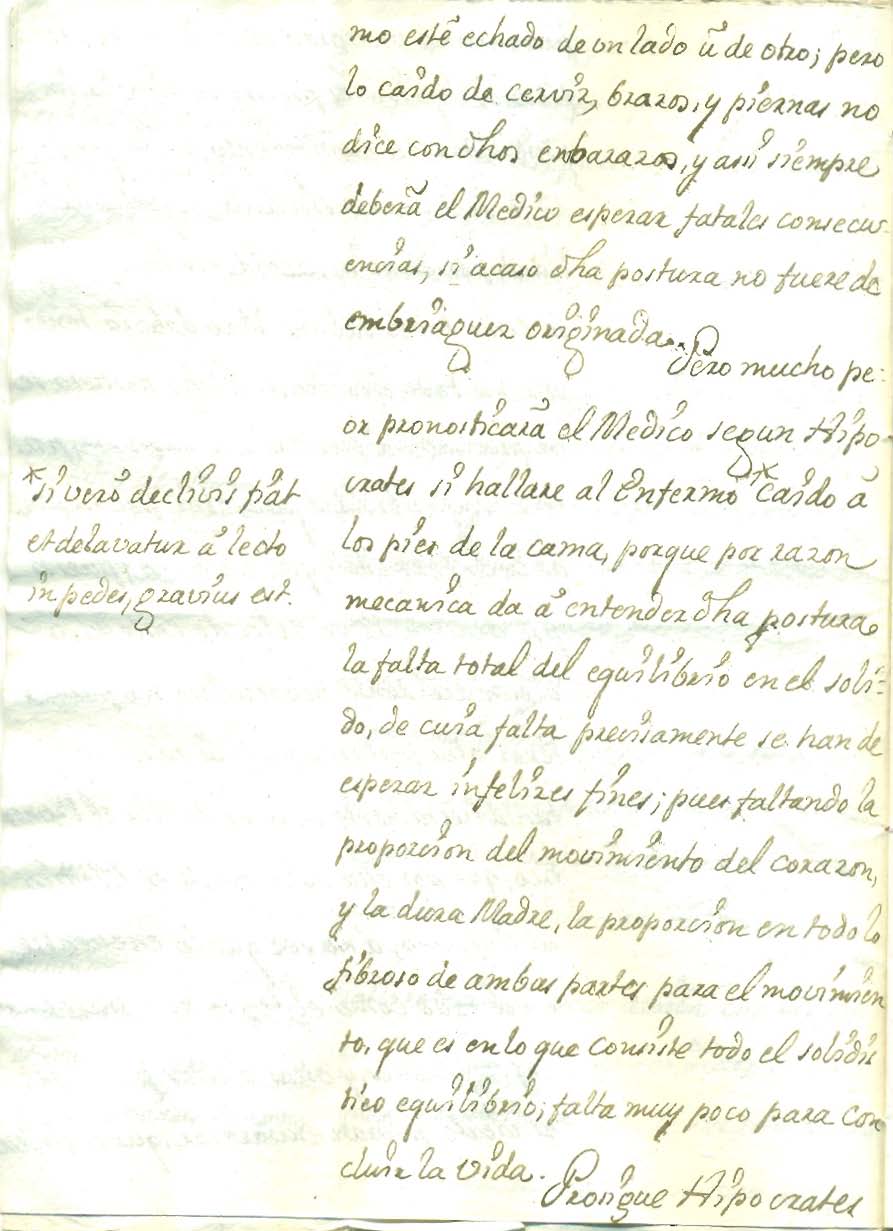 mo esté echado de un lado ù de otro; pero
lo caido de cerviz, brazos, y piernas no
dice con dhos enbarazos, y assi siempre
deberà el Medico esperar fatales consecu-
encias, si acaso dha postura no fuere de
embriaguez originada.
Pero mucho pe-
or pronosticarà el Medico segun Hipo-
crates si hallare al Enfermo * caido à
los pies de la cama, porque por razon
mecanica da à entender dha postura
la falta total del equilibrio en el soli-
do, de cuia falta precisamente se han de
esperar infelizes fines; pues faltando la
proporcion del movimiento del corazon,
y la dura Madre, la proporcion en todo lo
fibroso de ambas partes para el movimien
to, que es en lo que consiste todo el solidis
tico equilibrio; falta muy poco para con
cluir la vida.
Prosigue Hipocrates
* si verò declivis fiat
et delavatur à lecto
in pedes, gravius est.